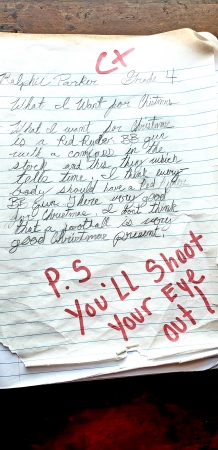 C+
Ralphie Parker Grade 4
What I Want for Christmas
What I want for Christmas
is a Red Ryder BB gun
with a compass in the
stock and this thing which
tells time. I think every-
body should have a Red Ryder
BB gun. There very good
for Christmas. I dont think
that a football is very
good Christmas present
P.S
You'll Shoot
Your Eye
out!